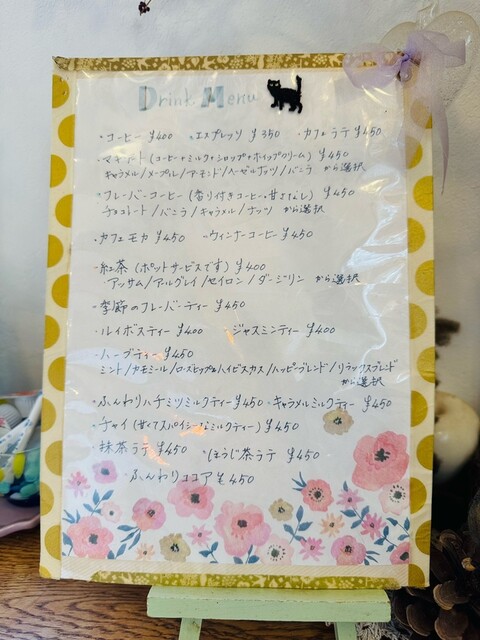 Drink Menu
・コーヒー ¥400 ・エスプレッソ ¥350 ・カフェラテ ¥450
・マキアート (コーヒー+ミルク+シロップ+ホイップクリーム) ¥450
キャラメル/メープル/アーモンド/ヘーゼルナッツ/バニラ から選択
・フレーバーコーヒー (香り付きコーヒー・甘さなし) ¥450
チョコレート/バニラ/キャラメル/ナッツ から選択
・カフェモカ ¥450 ・ウィンナーコーヒー ¥450
・紅茶 (ポットサービスです) ¥400
アッサム/アールグレイ/セイロン/ダージリン から選択
・季節のフレーバーティー ¥450
・ルイボスティー ¥400 ・ジャスミンティー ¥400
・ハーブティー ¥450
ミント/カモミール/ローズヒップ&ハイビスカス/ハッピーブレンド/リラックスブレンド
から選択
・ふんわりハチミツミルクティー ¥450 ・キャラメルミルクティー ¥450
・チャイ (甘くてスパイシーなミルクティー) ¥450
・抹茶ラテ ¥450 ・ほうじ茶ラテ ¥450
・ふんわりココア ¥450